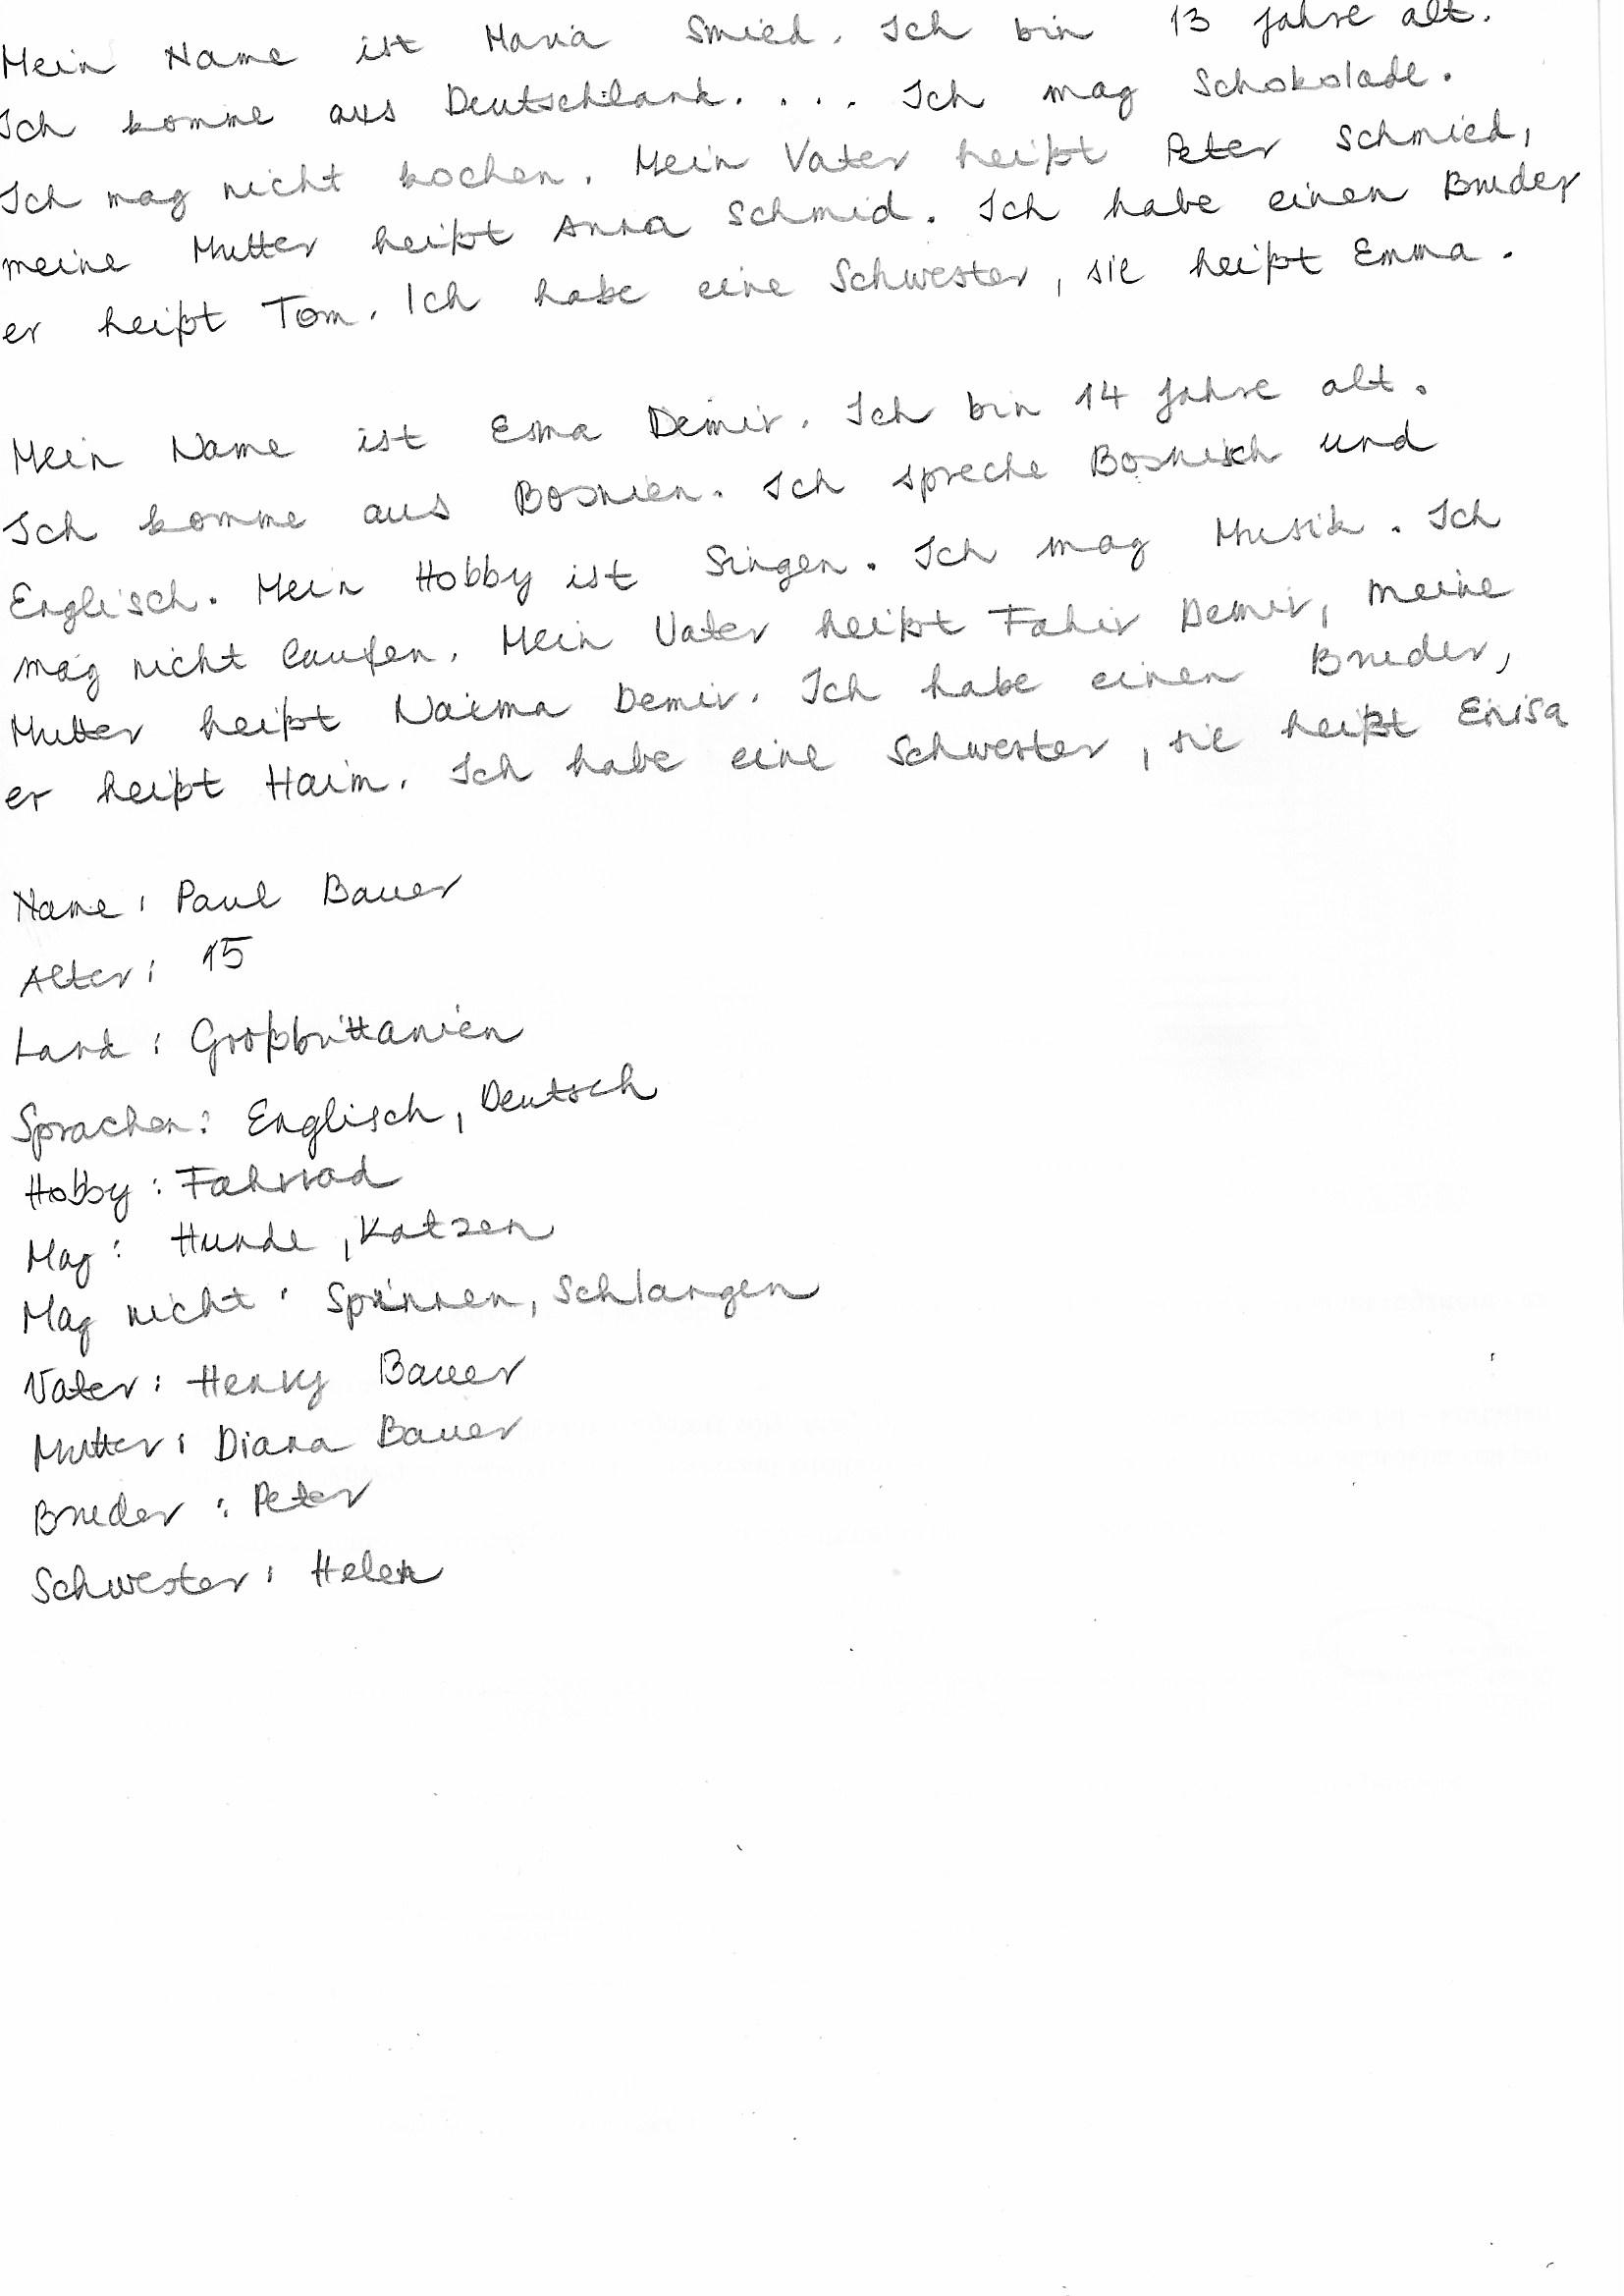 Mein Name ist Maria Smied. Ich bin 13 Jahre alt.
Ich komme aus Deutschlank. . . . Ich mag Schokolade.
Ich mag nicht kochen. Mein Vater heißt Peter Schmied,
meine Mutter heißt Anna Schmid. Ich habe einen Bruder
er heißt Tom. Ich habe eine Schwester, sie heißt Emma.
Mein Name ist Esma Demir. Ich bin 14 Jahre alt.
Ich komme aus Bosnien. Ich spreche Bosnisch und
Englisch. Mein Hobby ist Singen. Ich mag Musik. Ich
mag nicht laufen. Mein Vater heißt Fahir Demir, meine
Mutter heißt Naima Demir. Ich habe einen Bruder,
er heißt Haim. Ich habe eine Schwester, sie heißt Enisa
Name: Paul Bauer
Alter: 15
Land: Großbrittanien
Sprachen: Englisch, Deutsch
Hobby: Fahrrad
Mag: Hunde, Katzen
Mag nicht: Spinnen, Schlangen
Vater: Henry Bauer
Mutter: Diana Bauer
Bruder: Peter
Schwester: Helen